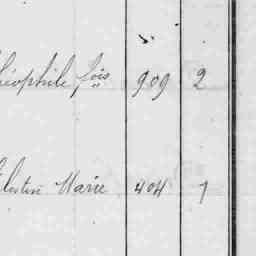 éophile fois 909 2
lestin Marie 404 1